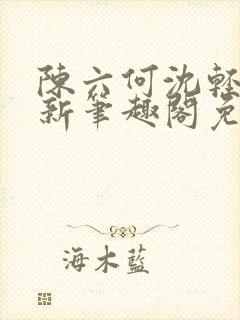 陳六何沈輕
新筆趣閣免
海木藍